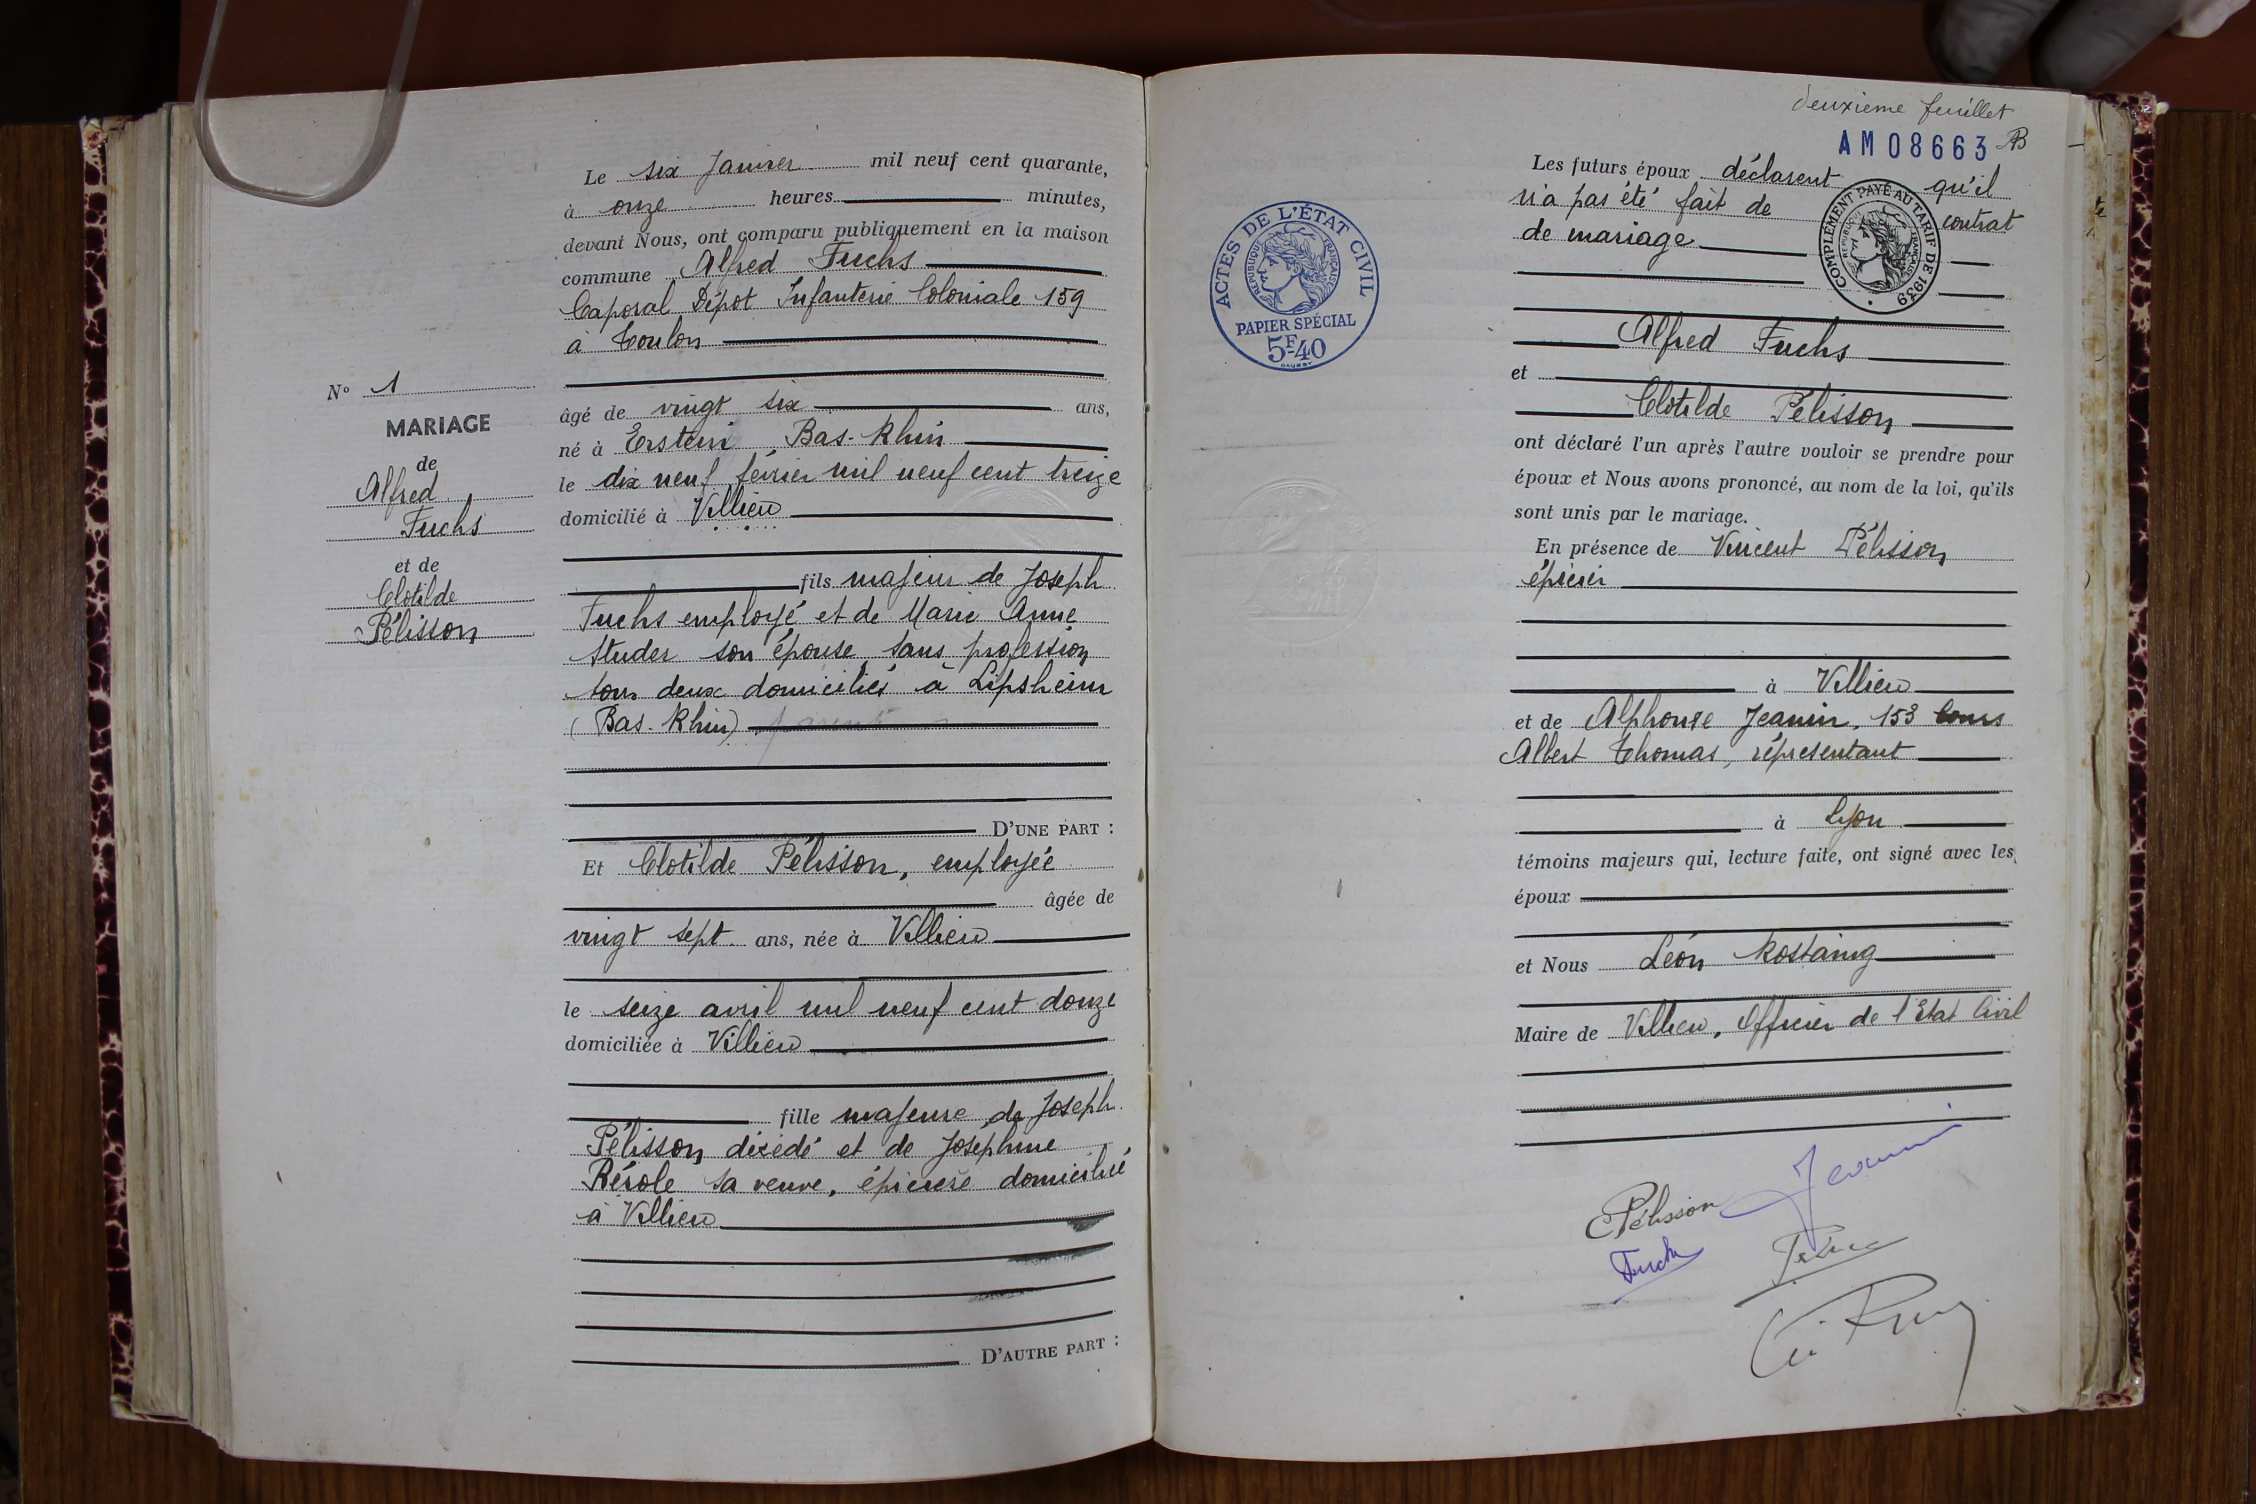 N° 1
MARIAGE
de
Alfred
Fuchs
et de
Clotilde
Pélisson
Le six Janvier mil neuf cent quarante,
à onze heures minutes,
devant Nous, ont comparu publiquement en la maison
commune Alfred Fuchs
Caporal Dépot Infanterie Coloniale 159
à Toulon
âgé de vingt six ans,
né à Erstein Bas-Rhin
le dix neuf février mil neuf cent treize
domicilié à Villieu
fils majeur de Joseph
Fuchs employé et de Marie Anne
Studer son épouse, sans profession
tous deux domiciliés à Lipsheim
(Bas-Rhin)
D'UNE PART :
Et Clotilde Pélisson, employée
âgée de
vingt sept ans, née à Villieu
le seize avril mil neuf cent douze
domiciliée à Villieu
fille majeure de Joseph
Pélisson décédé et de Joséphine
sa veuve, épicière domiciliée
à Villieu
D'AUTRE PART :
deuxième feuillet
AM08663
ACTES DE L'ÉTAT CIVIL
RÉPUBLIQUE FRANÇAISE
PAPIER SPÉCIAL
5F40
COMPLÉMENT PAYÉ AU TARIF DE 1939
RÉPUBLIQUE FRANÇAISE
Les futurs époux déclarent qu'il
n'a pas été fait de contrat
de mariage
Alfred Fuchs
et
Clotilde Pélisson
ont déclaré l'un après l'autre vouloir se prendre pour
époux et Nous avons prononcé, au nom de la loi, qu'ils
sont unis par le mariage.
En présence de Vincent Pélisson
épicier
à Villieu
et de Alphonse Jeanin, 153 Cours
Albert Thomas, représentant
à Lyon
témoins majeurs qui, lecture faite, ont signé avec les
époux
et Nous Léon Rostaing
Maire de Villieu, Officier de l'Etat Civil
Jeanin
C Pélisson
Fuchs